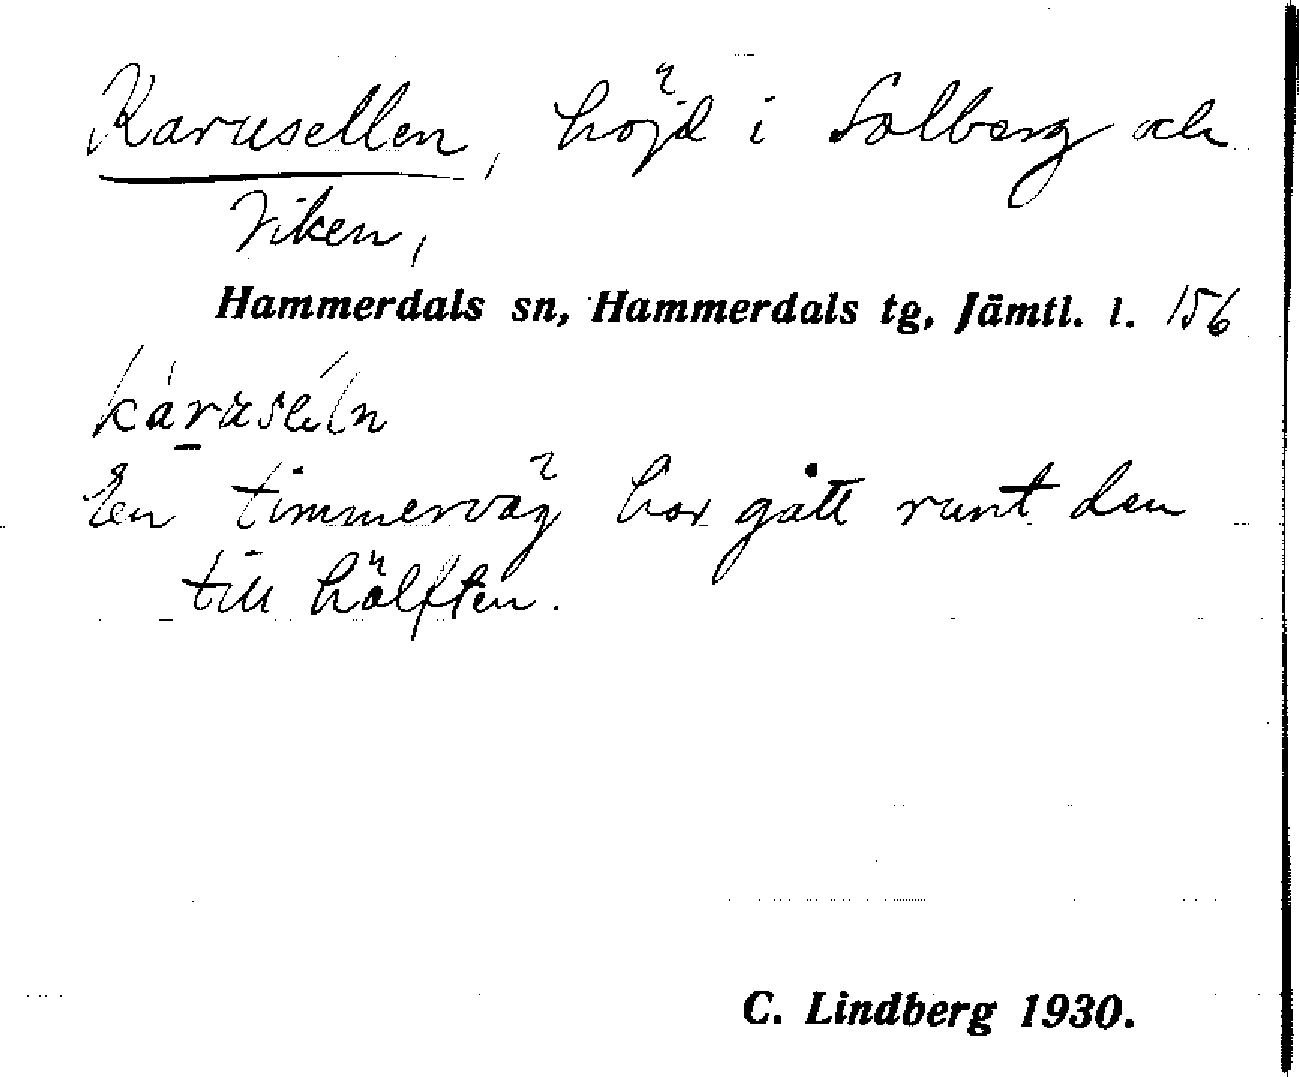 Karusellen, höjd i Solberg och
Viken,
Hammerdals sn, Hammerdals tg, Jämtl. l. 156
kàrusél̀n
En timmerväg har gått runt den
till hälften.
C. Lindberg 1930.